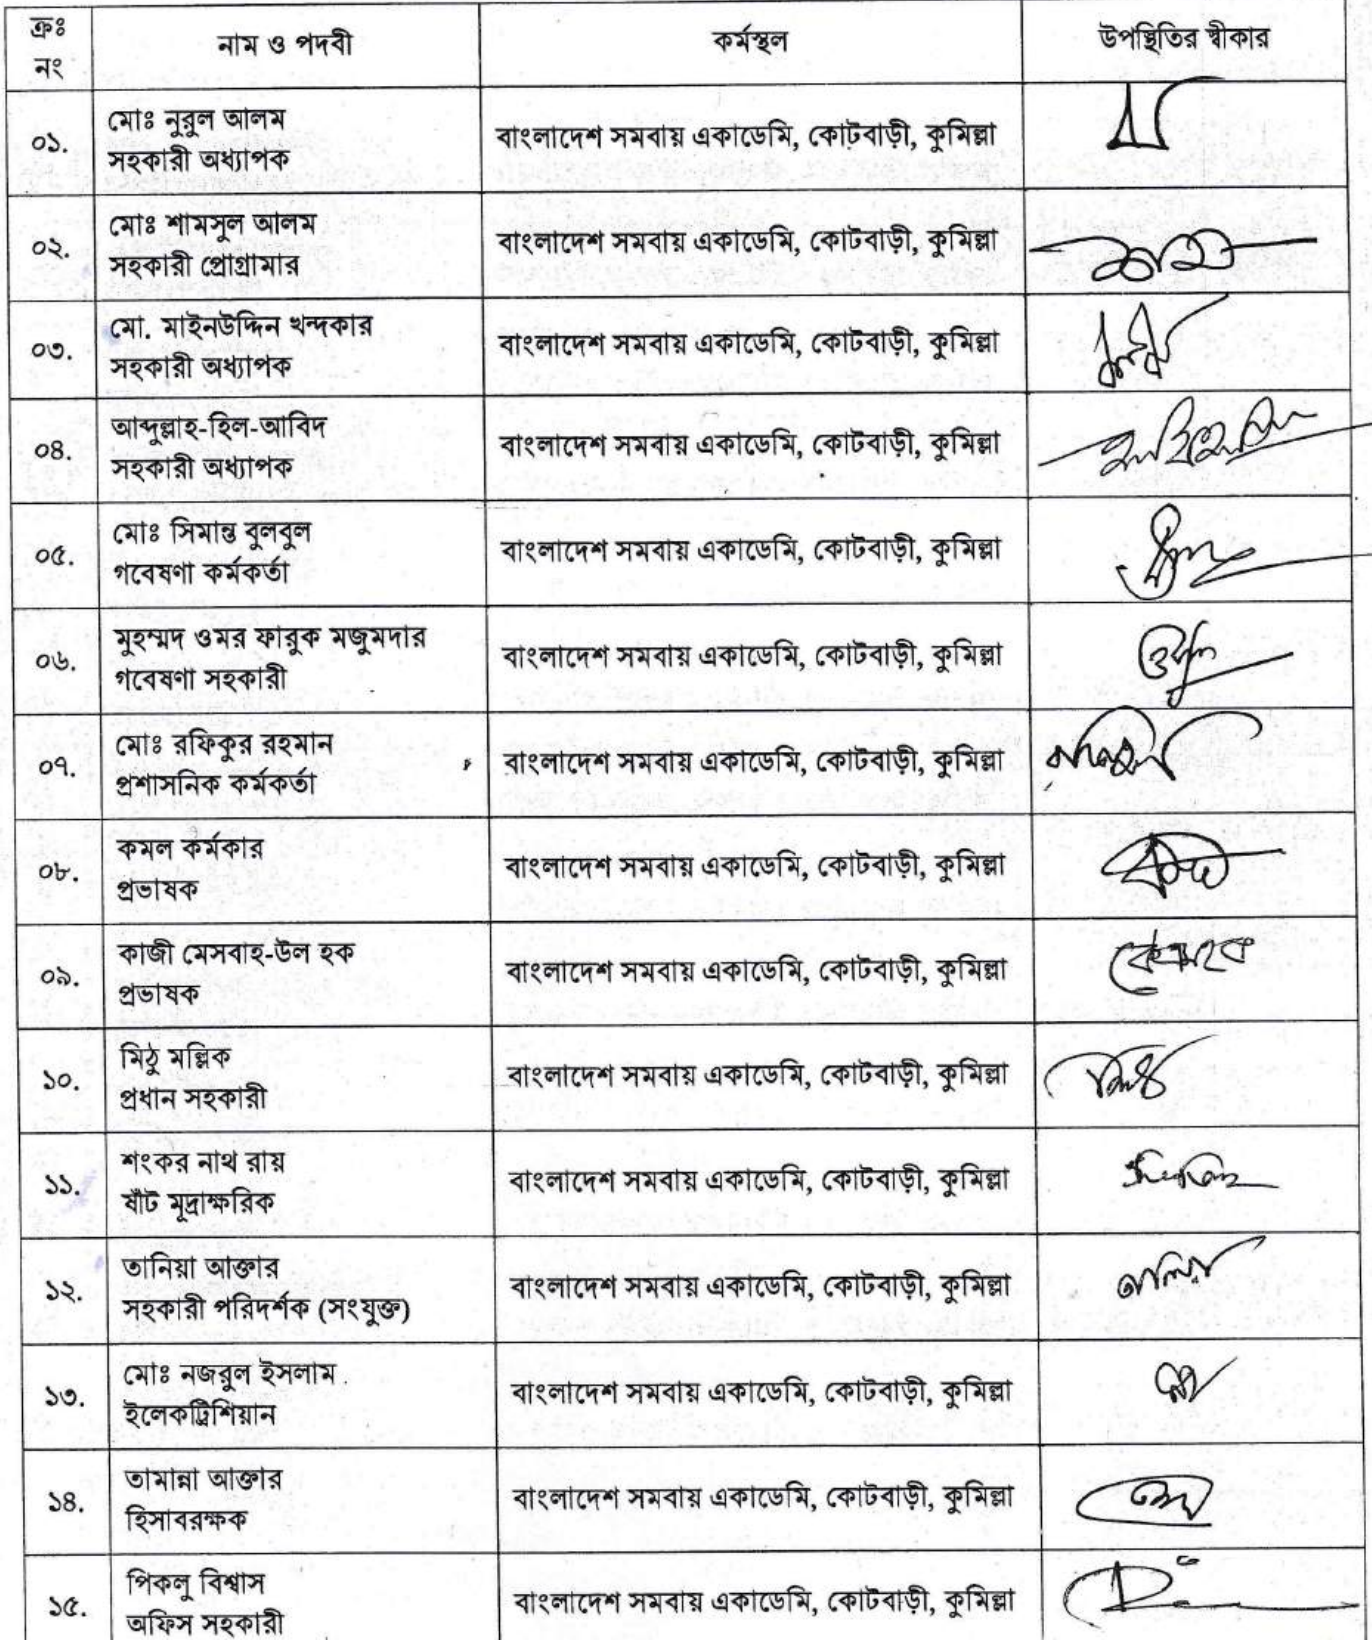 ক্রঃ নং	নাম ও পদবী	কর্মস্থল	উপস্থিতির স্বীকার
০১.	মোঃ নুরুল আলম
সহকারী অধ্যাপক	বাংলাদেশ সমবায় একাডেমি, কোটবাড়ী, কুমিল্লা
০২.	মোঃ শামসুল আলম
সহকারী প্রোগ্রামার	বাংলাদেশ সমবায় একাডেমি, কোটবাড়ী, কুমিল্লা
০৩.	মো. মাইনউদ্দিন খন্দকার
সহকারী অধ্যাপক	বাংলাদেশ সমবায় একাডেমি, কোটবাড়ী, কুমিল্লা
০৪.	আব্দুল্লাহ-হিল-আবিদ
সহকারী অধ্যাপক	বাংলাদেশ সমবায় একাডেমি, কোটবাড়ী, কুমিল্লা
০৫.	মোঃ সিমান্ত বুলবুল
গবেষণা কর্মকর্তা	বাংলাদেশ সমবায় একাডেমি, কোটবাড়ী, কুমিল্লা
০৬.	মুহম্মদ ওমর ফারুক মজুমদার
গবেষণা সহকারী	বাংলাদেশ সমবায় একাডেমি, কোটবাড়ী, কুমিল্লা
০৭.	মোঃ রফিকুর রহমান
প্রশাসনিক কর্মকর্তা	বাংলাদেশ সমবায় একাডেমি, কোটবাড়ী, কুমিল্লা
০৮.	কমল কর্মকার
প্রভাষক	বাংলাদেশ সমবায় একাডেমি, কোটবাড়ী, কুমিল্লা
০৯.	কাজী মেসবাহ-উল হক
প্রভাষক	বাংলাদেশ সমবায় একাডেমি, কোটবাড়ী, কুমিল্লা
১০.	মিঠু মল্লিক
প্রধান সহকারী	বাংলাদেশ সমবায় একাডেমি, কোটবাড়ী, কুমিল্লা
১১.	শংকর নাথ রায়
ষাঁট মূদ্রাক্ষরিক	বাংলাদেশ সমবায় একাডেমি, কোটবাড়ী, কুমিল্লা
১২.	তানিয়া আক্তার
সহকারী পরিদর্শক (সংযুক্ত)	বাংলাদেশ সমবায় একাডেমি, কোটবাড়ী, কুমিল্লা
১৩.	মোঃ নজরুল ইসলাম
ইলেকট্রিশিয়ান	বাংলাদেশ সমবায় একাডেমি, কোটবাড়ী, কুমিল্লা
১৪.	তামান্না আক্তার
হিসাবরক্ষক	বাংলাদেশ সমবায় একাডেমি, কোটবাড়ী, কুমিল্লা
১৫.	পিকলু বিশ্বাস
অফিস সহকারী	বাংলাদেশ সমবায় একাডেমি, কোটবাড়ী, কুমিল্লা